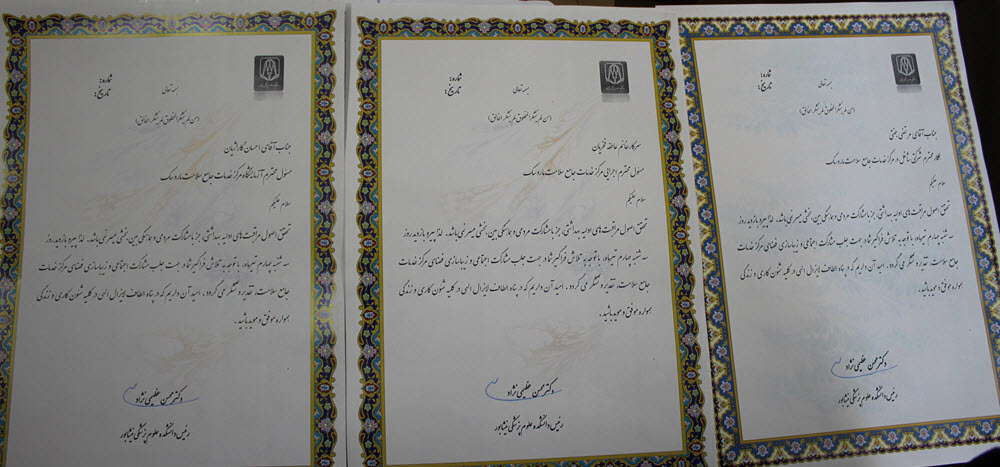 بسمه تعالی
شماره:
تاریخ:
(من لم یشکر المخلوق لم یشکر الخالق)
جناب آقای احسان کاراژیان
مسئول محترم آزمایشگاه مرکز خدمات جامع سلامت باروسک
سلام علیکم
تحقق اصول مراقبت های اولیه بهداشتی، جز با مشارکت مردمی و هماهنگی بین بخشی میسر نمی باشد. لذا پیرو بازدید روز
سه شنبه چهارم تیرماه، با توجه به تلاش فراگیر شما در جهت جلب مشارکت اجتماعی و زیباسازی فضای مرکز خدمات
جامع سلامت، تقدیر و تشکر می گردد. امید آن داریم که در پناه الطاف لایزال الهی در کلیه شئون کاری و زندگی
همواره موفق و موید باشید.
دکتر محسن عظیمی نژاد
رئیس دانشکده علوم پزشکی نیشابور
بسمه تعالی
شماره:
تاریخ:
(من لم یشکر المخلوق لم یشکر الخالق)
سرکار خانم عاطفه
مسئول محترم اجرایی مرکز خدمات جامع سلامت باروسک
سلام علیکم
تحقق اصول مراقبت های اولیه بهداشتی، جز با مشارکت مردمی و هماهنگی بین بخشی میسر نمی باشد. لذا پیرو بازدید روز
سه شنبه چهارم تیرماه، با توجه به تلاش فراگیر شما در جهت جلب مشارکت اجتماعی و زیباسازی فضای مرکز خدمات
جامع سلامت، تقدیر و تشکر می گردد. امید آن داریم که در پناه الطاف لایزال الهی در کلیه شئون کاری و زندگی
همواره موفق و موید باشید.
دکتر محسن عظیمی نژاد
رئیس دانشکده علوم پزشکی نیشابور
بسمه تعالی
شماره:
تاریخ:
(من لم یشکر المخلوق لم یشکر الخالق)
جناب آقای مرتضی
همکار محترم شرکتی شاغل در مرکز خدمات جامع سلامت باروسک
سلام علیکم
تحقق اصول مراقبت های اولیه بهداشتی، جز با مشارکت مردمی و هماهنگی بین بخشی میسر نمی باشد. لذا پیرو بازدید روز
سه شنبه چهارم تیرماه، با توجه به تلاش فراگیر شما در جهت جلب مشارکت اجتماعی و زیباسازی فضای مرکز خدمات
جامع سلامت، تقدیر و تشکر می گردد. امید آن داریم که در پناه الطاف لایزال الهی در کلیه شئون کاری و زندگی
همواره موفق و موید باشید.
دکتر محسن عظیمی نژاد
رئیس دانشکده علوم پزشکی نیشابور